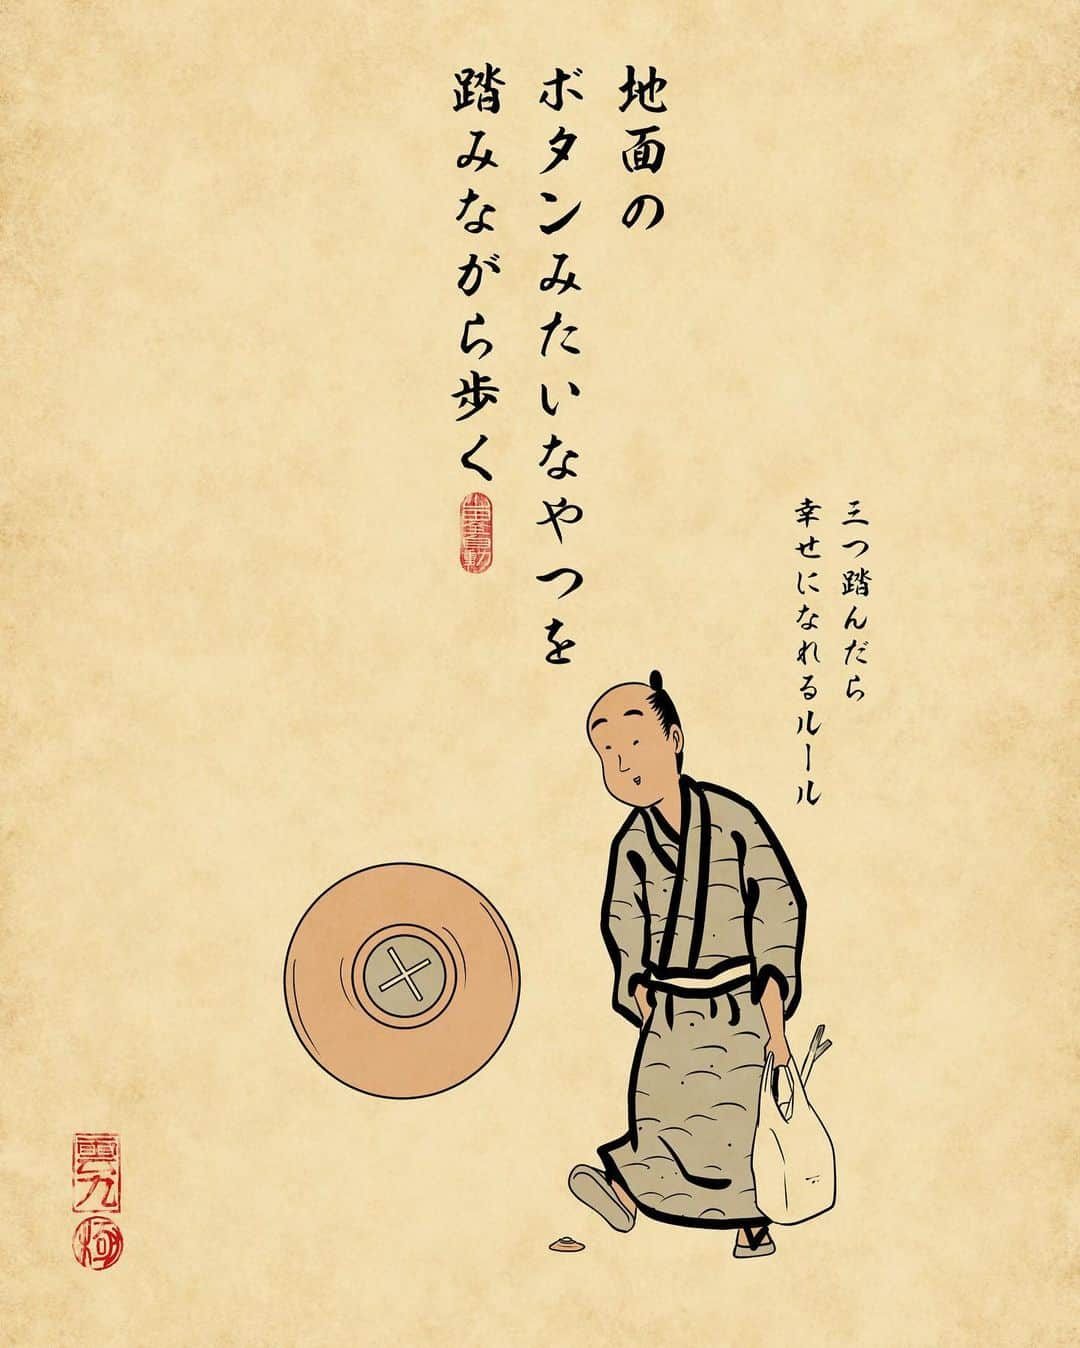 地面の
ボタンみたいなやつを
踏みながら歩く
三つ踏んだら
幸せになれるルール